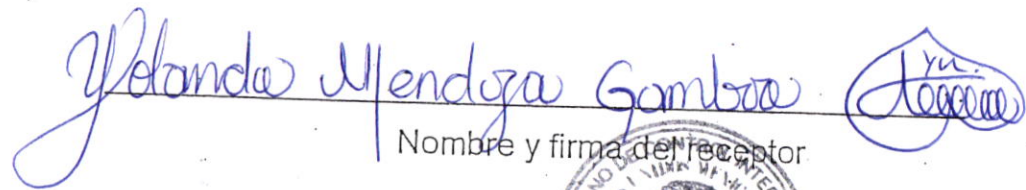 Yolanda Mendoza Gamboa
Nombre y firma del receptor